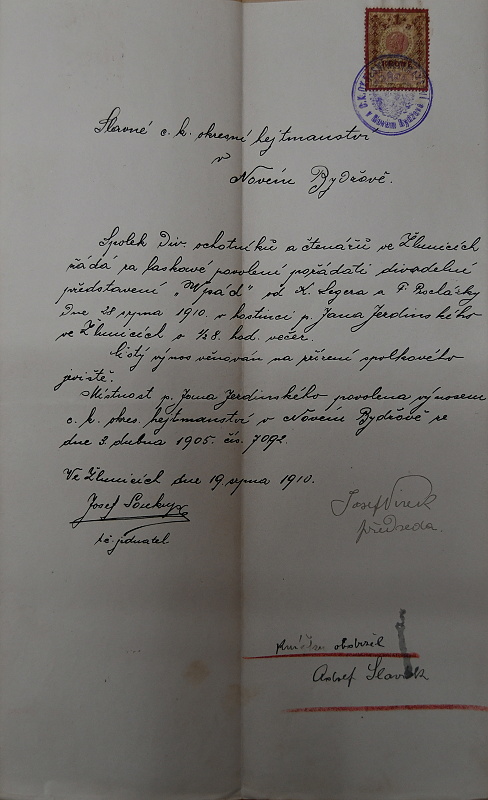 1
Slavné c. k. okresní hejtmanství
v
Novém Bydžově.
Spolek Div. ochotníků a čtenářů ve Žlunicích
žádá za laskavé povolení pořádati divadelní
představení „Vpád" od K. Legera a F. Procházky
Dne 28 srpna 1910. v hostinci p. Jana Jerdinského
ve Žlunicích o ½8. hod. večer.
Čistý výnos věnován na zřízení spolkového
jeviště.
Místnost p. Jana Jerdinského povolena výnosem
c. k. okres. hejtmanství v Novém Bydžově ze
dne 3. dubna 1905. čís. 7092.
Ve Žlunicích dne 19. srpna 1910.
Josef Soukup
t.č. jednatel
Josef
předseda.
obdržel